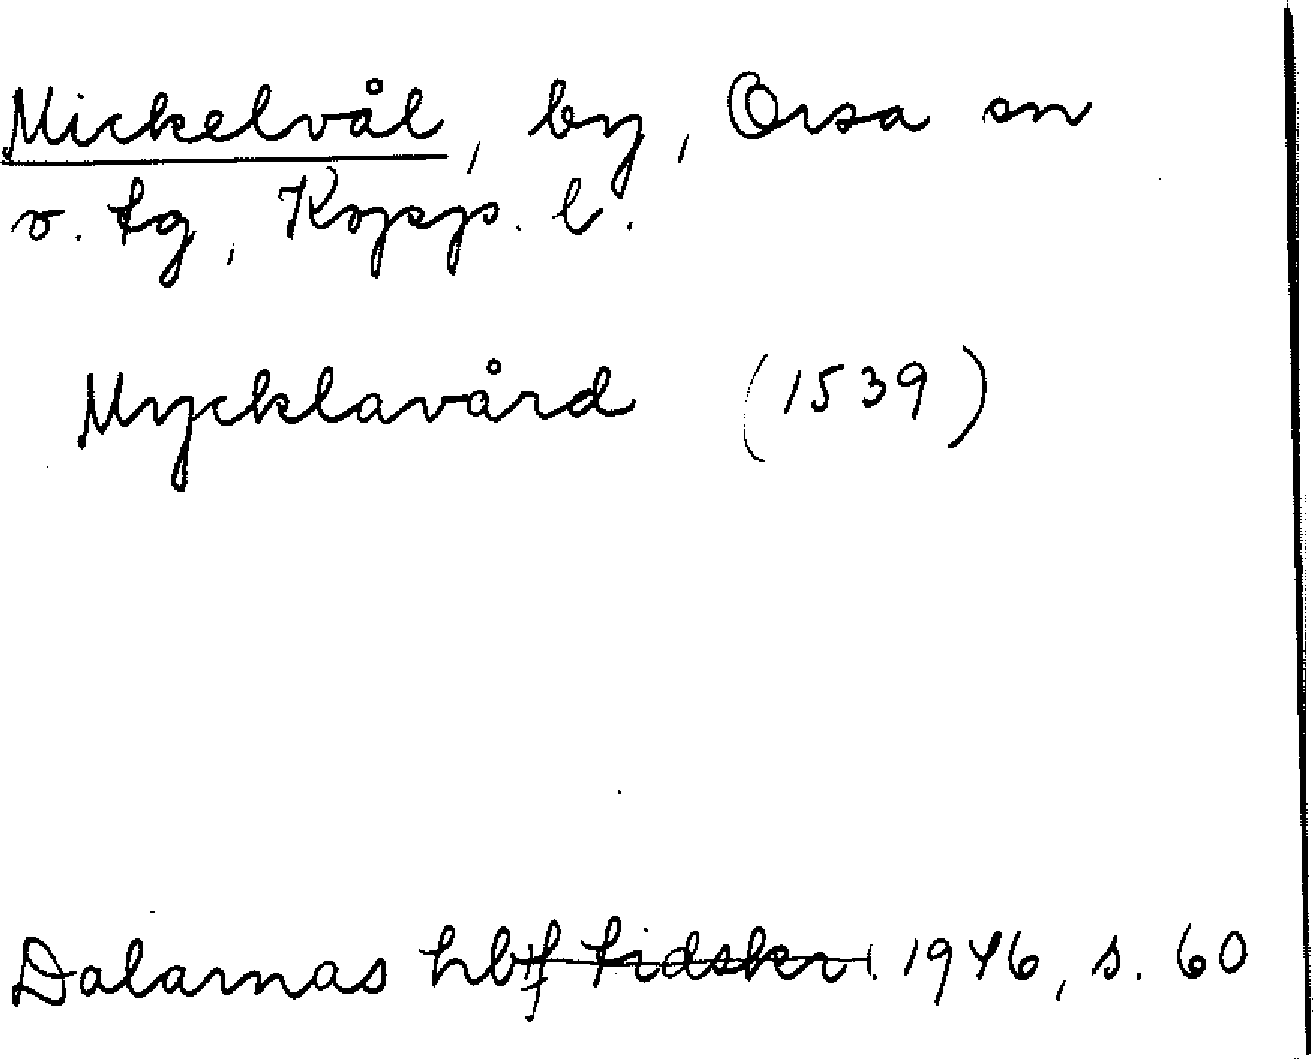 Mickelvål, by, Orsa sn
o. tg, Kopp. l.
Mycklavård (1539)
Dalarnas hbf tidskr. 1946, s. 60